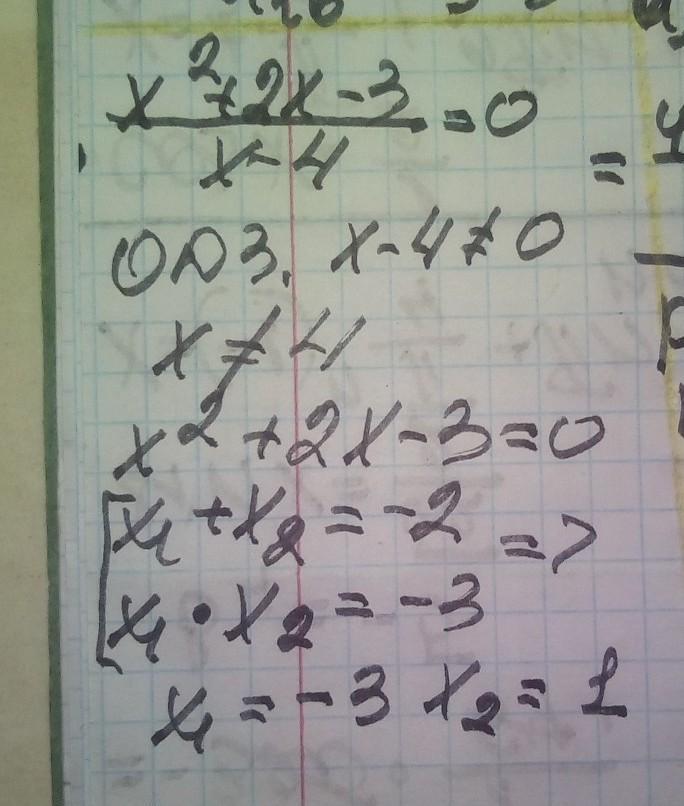 x²+2x-3
/ x-4 = 0
ОДЗ. x-4≠0
x≠4
x²+2x-3=0
[x₁+x₂=-2 =>
x₁•x₂=-3
x₁=-3 x₂=1